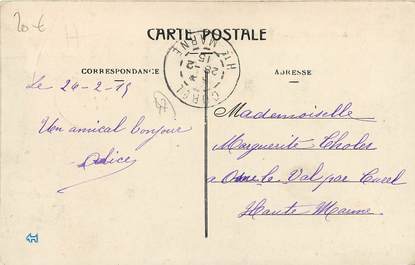 20 €
CARTE POSTALE
CORRESPONDANCE
ADRESSE
CUREL
HTE MARNE
Le 24-2-15
Un amical bonjour
Alice
Mademoiselle
Marguerite
a Osne le Val par Curel
Haute Marne